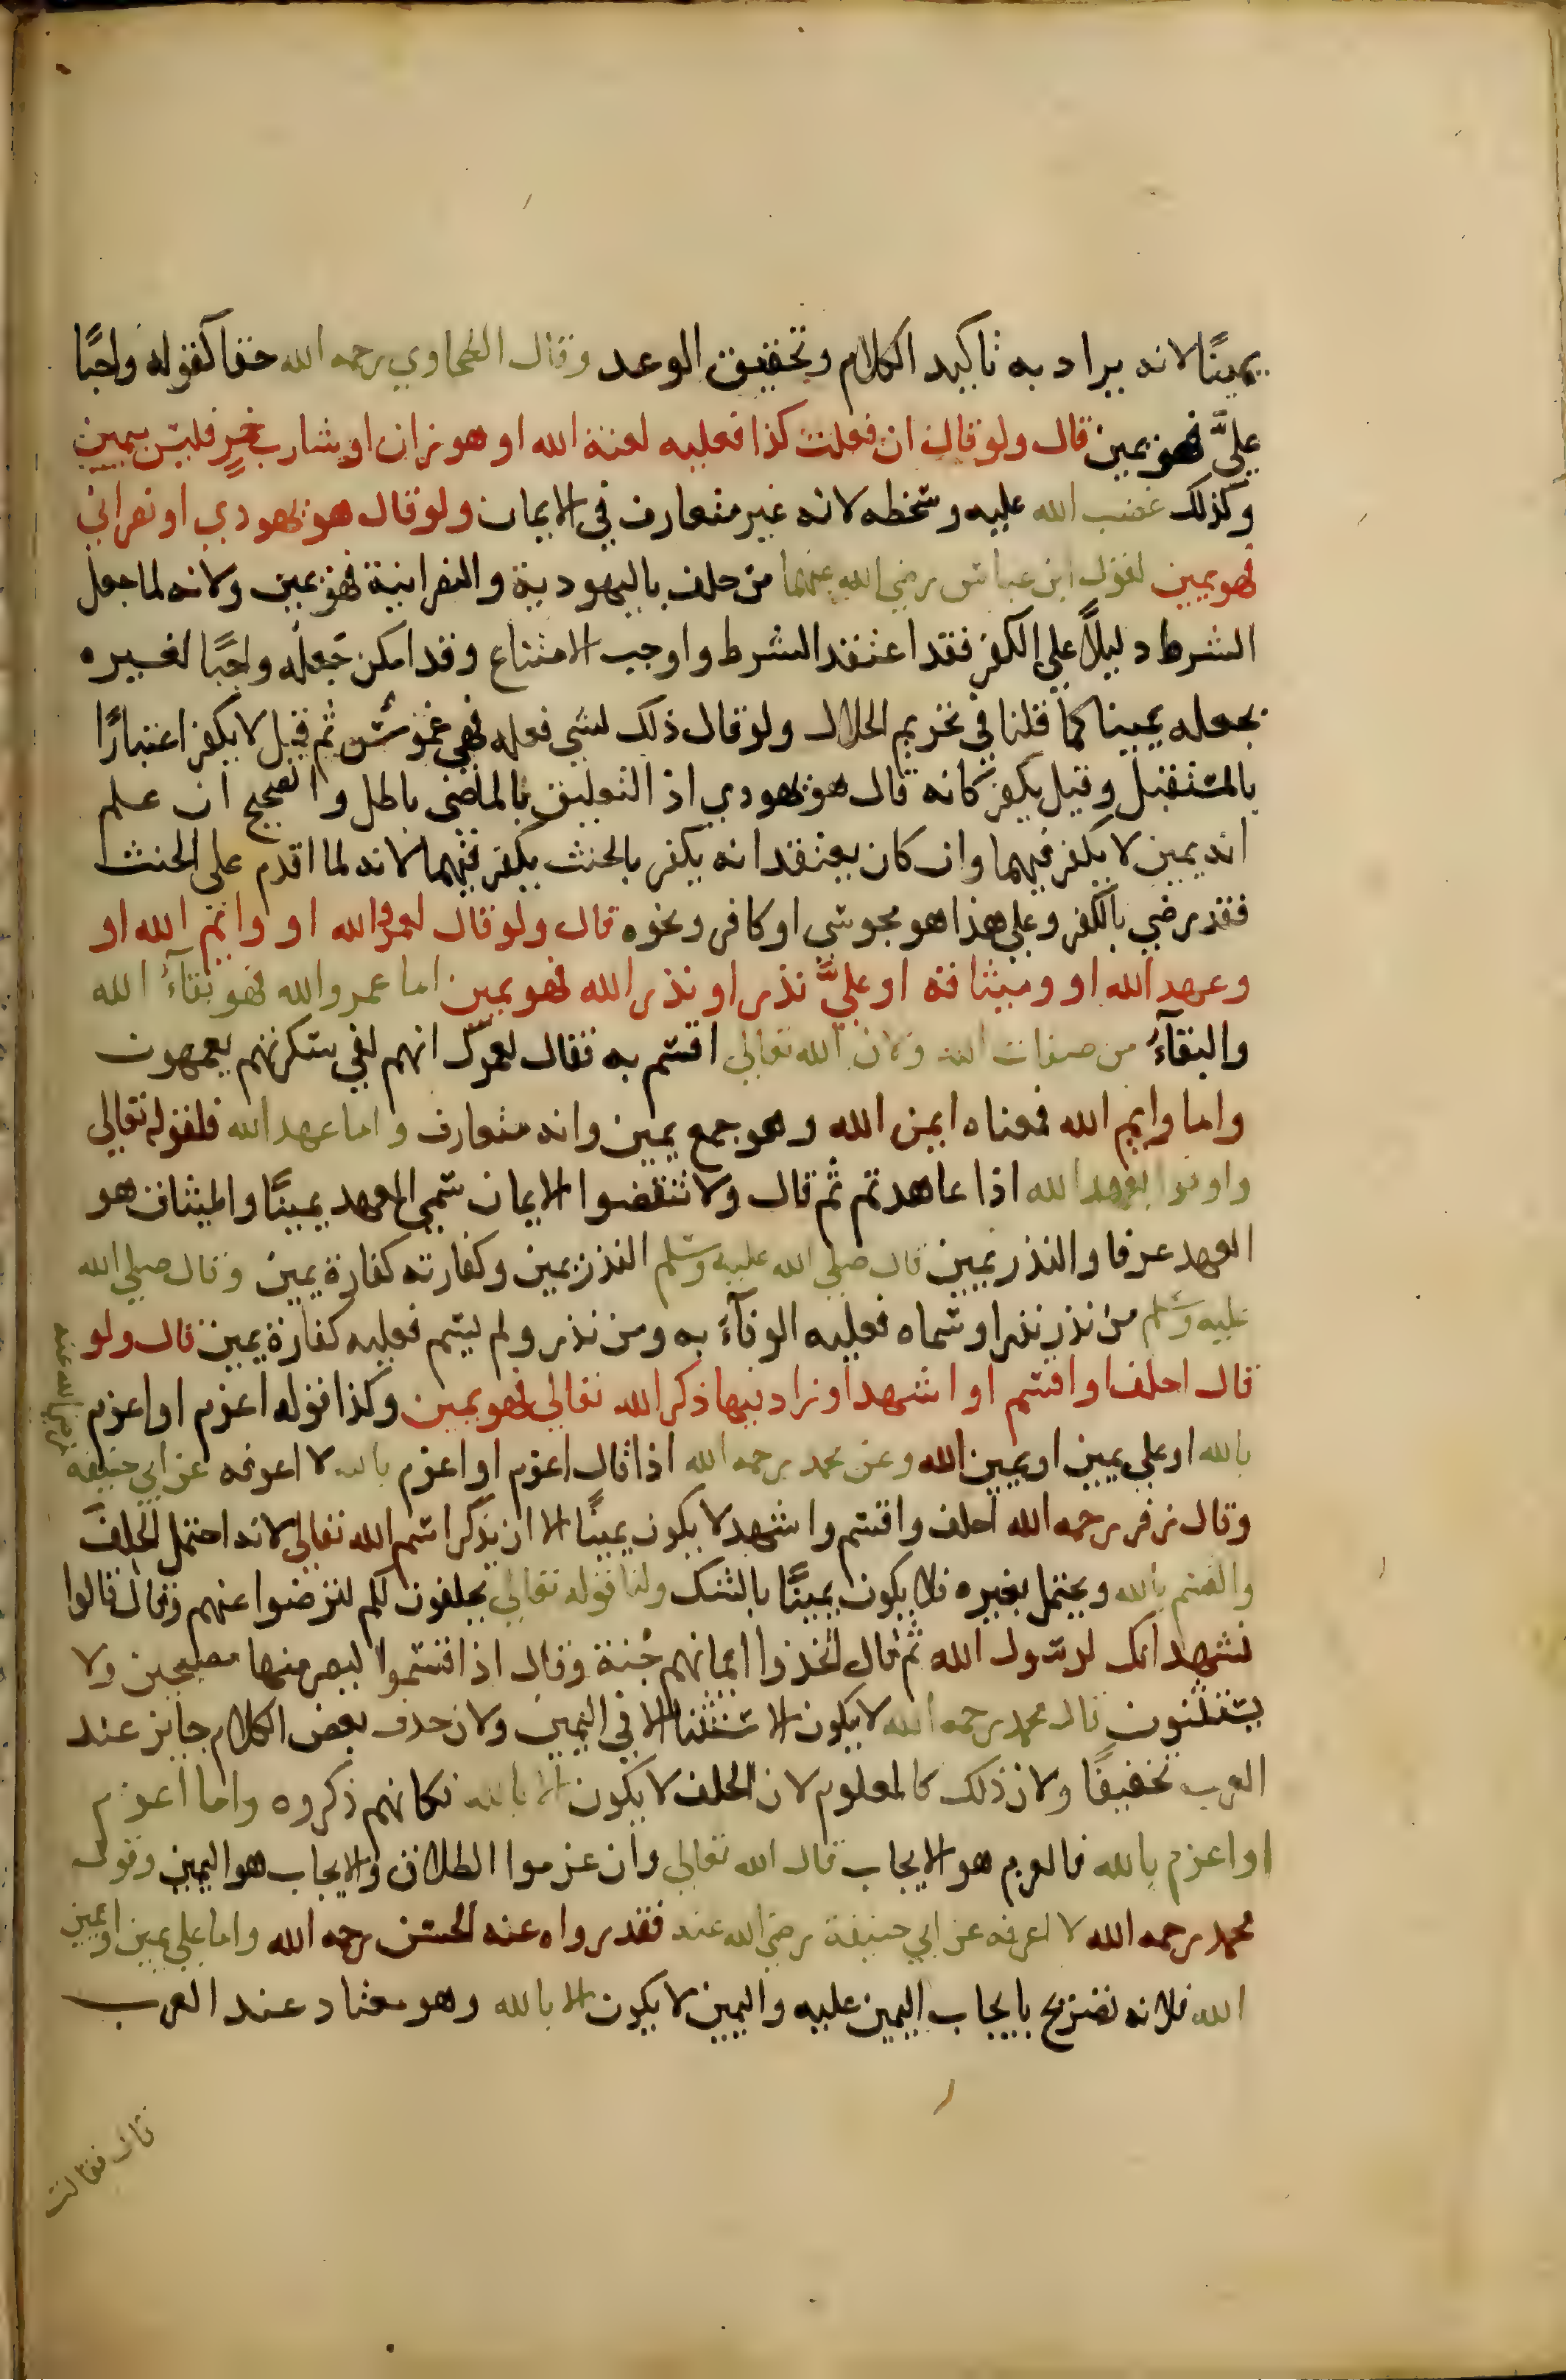 يمينًا لانه يراد به تاكيد الكلام وتحقيق الوعد وقال الطحاوي رحمه الله حقا كقوله واجبًا
عليَّ فهو يمين قال ولو قال ان فعلت كذا فعليه لعنة الله او هو زان او شارب خمرٍ فليس بيمين
وكذلك غضب الله عليه وسخطه لانه غير متعارف في الايمان ولو قال هو يهودي او نصراني
فهو يمين لقول ابن عباس رضي الله عنهما من حلف باليهودية والنصرانية فهو يمين ولانه لما جعل
الشرط دليلاً على الكفر فقد اعتقد الشرط واوجب الامتناع وقد امكن جَعله واجبًا لغيره
بجعله يمينا كما قلنا في تحريم الحلال ولو قال ذلك لشي فعله فهي غموس ثم قيل لا يكفر اعتبارًا
بالمستقبل وقيل يكفر كانه قال هو يهودي اذ التعليق بالماضي باطل والصحيح ان علم
انه يمين لا يكفر فيهما وان كان يعتقد انه يكفر بالحنث يكفر فيهما لانه لما اقدم على الحنث
فقد رضي بالكفر وعلى هذا هو مجوسي او كافر ونحوه قال ولو قال لعمرو الله او وايم الله او
وعهد الله او وميثاقه او عليَّ نذر او نذر الله فهو يمين اما عمرو الله فهو بقآء الله
والبقآءُ من صفات الله ولان الله تعالى اقسم به فقال لعمرك انهم لفي سكرتهم يعمهون
واما وايم الله فمعناه ايمن الله وهو جمع يمين وانه متعارف واما عهد الله فلقوله تعالى
واوفوا بعهد الله اذا عاهدتم ثم قال ولا تنقضوا الايمان سمي العهد يمينًا والميثاق هو
العهد عرفا والنذر يمين قال صلى الله عليه وسلم النذر يمين وكفارته كفارة يمين وقال صلى الله
عليه وسلم من نذر نذرا وسماه فعليه الوفآءُ به ومن نذر ولم يسم فعليه كفارة يمين قال ولو
قال احلف او اقسم او اشهد او زاد فيها ذكر الله تعالى فهو يمين وكذا قوله اعزم او اعزم
بالله او علي يمين او يمين الله وعن محمد رحمه الله اذا قال اعزم او اعزم بالله لا اعرفه عن ابي حنيفة
رضي الله عنه
وقال زفر رحمه الله احلف واقسم واشهد لا يكون يمينًا الا ان يذكر اسم الله تعالى لانه احتمل الحلف
والقسم بالله ويحتمل بغيره فلا يكون يمينًا بالشك ولنا قوله تعالى يحلفون لكم لترضوا عنهم وقال قالوا
نشهد انك لرسول الله ثم قال اتخذوا ايمانهم جُنة وقال اذ اقسموا ليصرمنها مصبحين ولا
يستثنون قال محمد رحمه الله لا يكون الاستثنا الا في اليمين ولان حذف بعض الكلام جايز عند
العرب تخفيفًا ولان ذلك كالمعلوم لان الحلف لا يكون الا بالله فكانهم ذكروه واما اعزم
او اعزم بالله فالعزم هو الايجاب قال الله تعالى وان عزموا الطلاق والايجاب هو اليمين وقول
محمد رحمه الله لا اعرفه عن ابي حنيفة رضي الله عنه فقد رواه عنه الحسن رحمه الله واما علي يمين او يمين
الله فلانه تصريح بايجاب اليمين عليه واليمين لا يكون الا بالله وهو معتاد عند العرب
قال فقالت